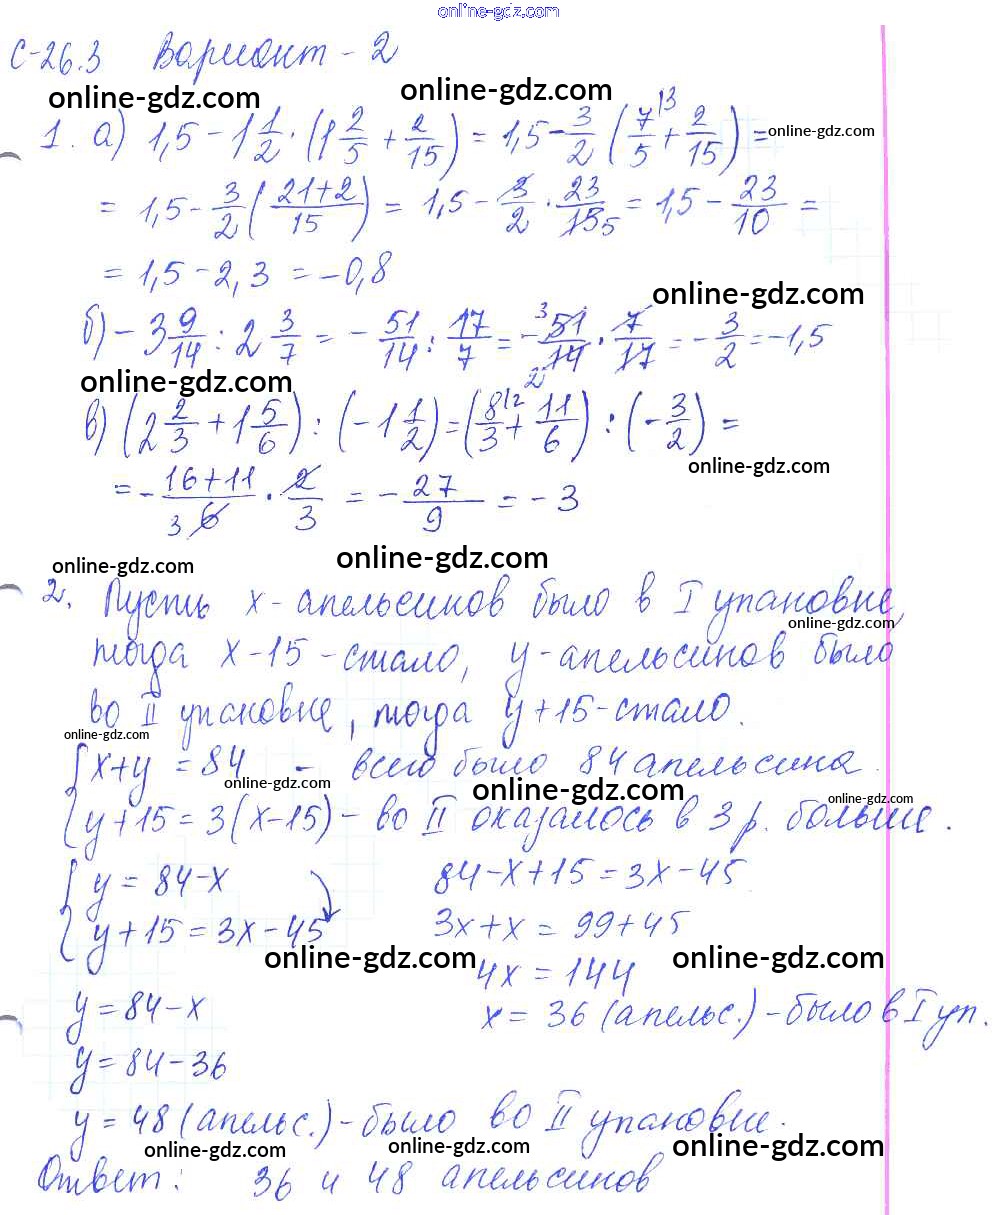 online-gdz.com
С-26.3 Вариант - 2
online-gdz.com online-gdz.com
1. а) 1,5 - 1 1/2 · (1 2/5 + 2/15) = 1,5 - 3/2 (7/5 |3 + 2/15) = online-gdz.com
= 1,5 - 3/2 (21+2/15) = 1,5 - 3/2 · 23/15 5 = 1,5 - 23/10 =
= 1,5 - 2,3 = -0,8
online-gdz.com
б) - 3 9/14 : 2 3/7 = - 51/14 : 17/7 = - 3 51/14 2 · 7/17 = - 3/2 = -1,5
online-gdz.com
в) (2 2/3 + 1 5/6) : (-1 1/2) = (8/3 |2 + 11/6) : (- 3/2) =
online-gdz.com
= - 16+11/3 6 · 2/3 = - 27/9 = - 3
online-gdz.com online-gdz.com
2. Пусть x - апельсинов было в I упаковке,
online-gdz.com
тогда x - 15 - стало, y - апельсинов было
во II упаковке, тогда y + 15 - стало.
online-gdz.com
{ x + y = 84 - всего было 84 апельсина.
online-gdz.com online-gdz.com online-gdz.com
y + 15 = 3(x - 15) - во II оказалось в 3 р. больше.
{ y = 84 - x 84 - x + 15 = 3x - 45
y + 15 = 3x - 45 3x + x = 99 + 45
online-gdz.com 4x = 144 online-gdz.com
y = 84 - x x = 36 (апельс.) - было в I уп.
y = 84 - 36
y = 48 (апельс.) - было во II упаковке.
online-gdz.com online-gdz.com online-gdz.com
Ответ: 36 и 48 апельсинов